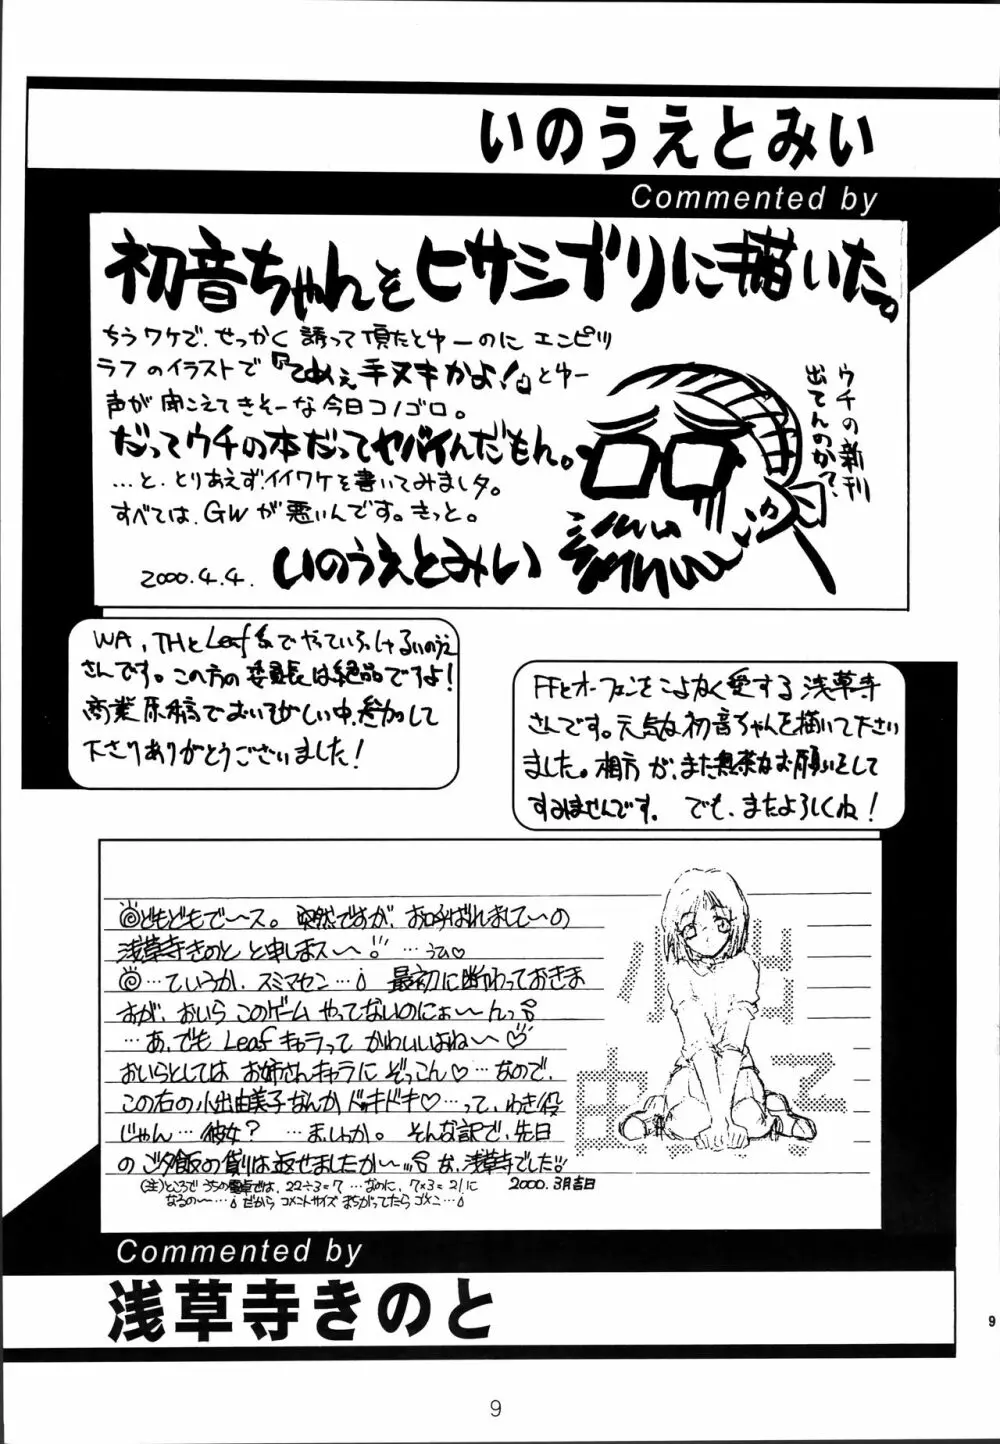 いのうえとみい
Commented by
初音ちゃんをヒサシブリに描いた。
ちうワケで、せっかく誘って頂たとゆーのにエンピツ
ラフのイラストで『てめぇ手ヌキかよ!』とゆー
声が聞こえてきそーな今日コノゴロ。
だってウチの本だってヤバイんだもん。
…と、とりあえず、イイワケを書いてみましタ。
すべては、GWが悪いんです。きっと。
2000.4.4. いのうえとみい
ウチの新刊
出てんのか?
WA、THとLeaf系でやっていらっしゃるいのうえ
さんです。この方の委員長は絶品ですよ!
商業原稿でおいそがしい中、参加して
下さりありがとうございました!
FFとオーフェンをこよなく愛する浅草寺
さんです。元気な初音ちゃんを描いて下さい
ました。相方が、また無茶なお願いをして
すみませんです。 でも、またよろしくね!
どもどもで〜ス。突然ですが、お呼ばれしまして〜の
浅草寺きのと と申しまス〜 …うひ♡
…ていうか、スミマセン… 最初に断わっておきま
すが、おいら このゲーム やってないのにぉ〜んっ
…あ、でも Leafキャラって かわいいよね〜♡
おいらとしては お姉さんキャラに ぞっこん♡…なので、
この右の小出由美子なんか ドッキドキ♡…って、わき役
じゃん…彼女? …ましょか。 そんな訳で、先日
のご夕飯の借りは返せましたか〜 な、浅草寺でした!!
(注)ところで うちの電卓では、22÷3=7 …なのに、7×3=21に
なるの〜… だから コメントサイズ まちがってたら ゴメン…
2000.3月吉日
小出
由美子
Commented by
浅草寺きのと
9
9